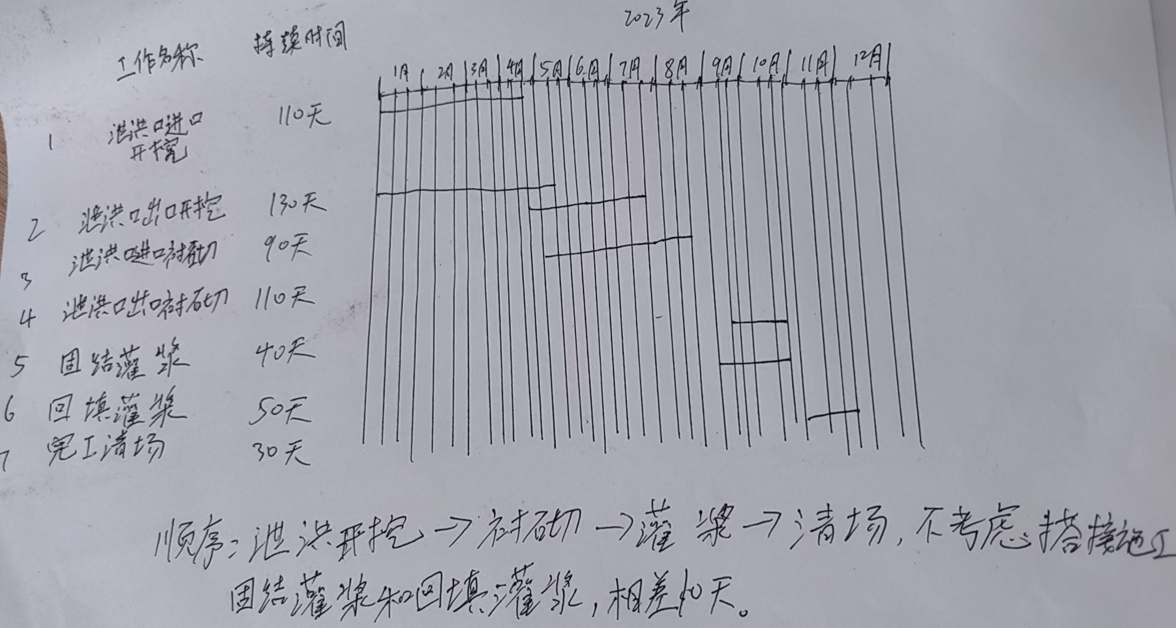 2023年
工作名称 持续时间
1月 2月 3月 4月 5月 6月 7月 8月 9月 10月 11月 12月
1 泄洪口进口 110天
开挖
2 泄洪口出口开挖 130天
3 泄洪口进口衬砌 90天
4 泄洪口出口衬砌 110天
5 固结灌浆 40天
6 回填灌浆 50天
7 完工清场 30天
顺序：泄洪开挖→衬砌→灌浆→清场，不考虑搭接施工
固结灌浆和回填灌浆，相差10天。